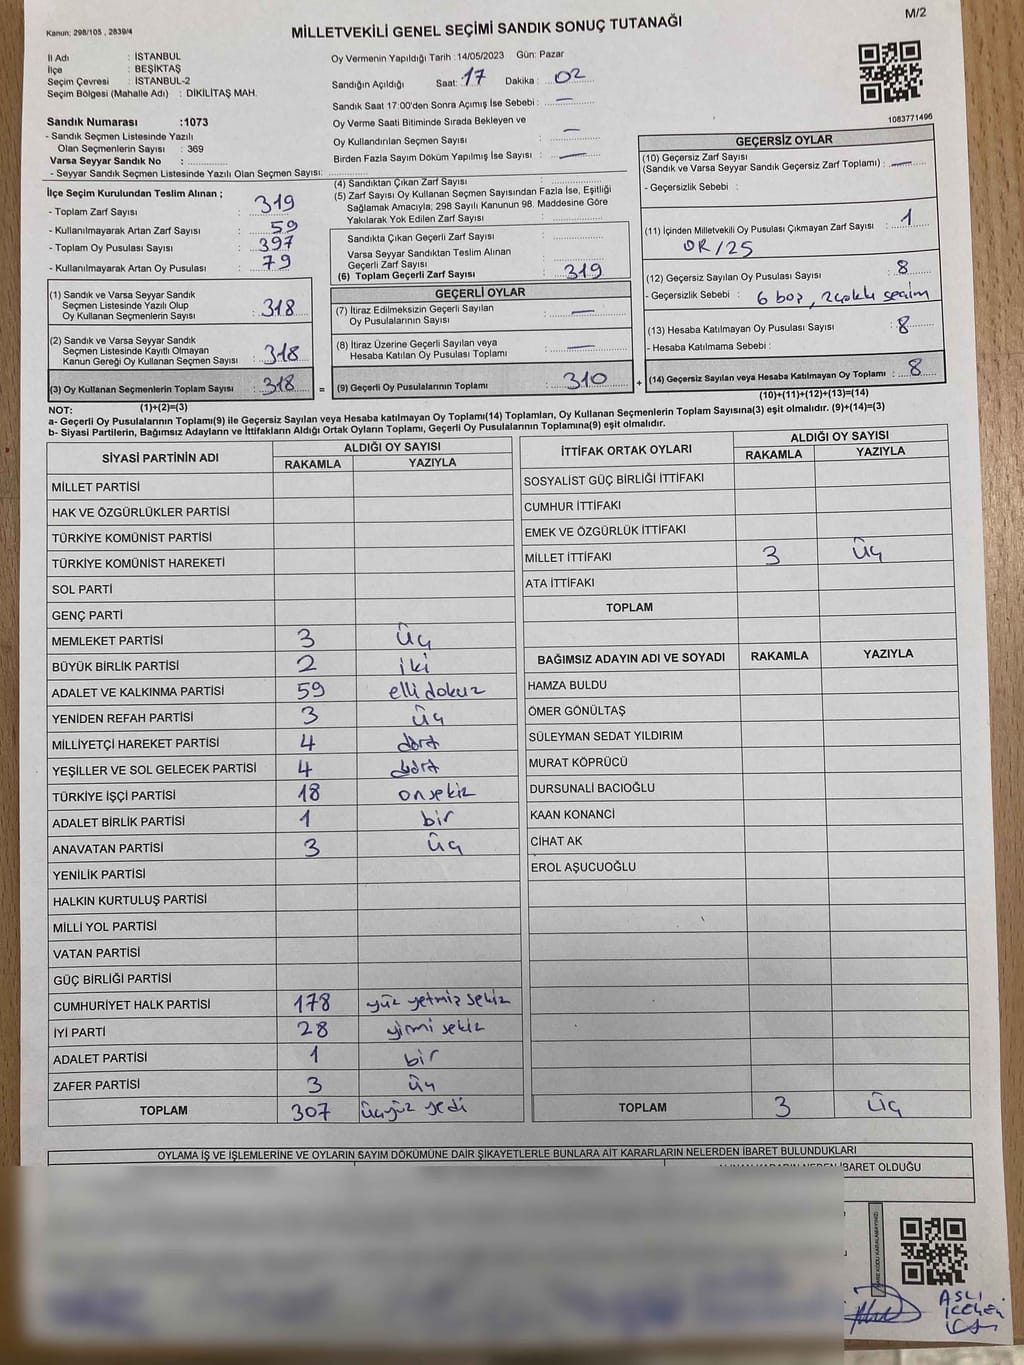 Kanun; 298/105 , 2839/4
MİLLETVEKİLİ GENEL SEÇİMİ SANDIK SONUÇ TUTANAĞI
M/2
İl Adı : İSTANBUL
İlçe : BEŞİKTAŞ
Seçim Çevresi : İSTANBUL-2
Seçim Bölgesi (Mahalle Adı) : DİKİLİTAŞ MAH.
Sandık Numarası :1073
- Sandık Seçmen Listesinde Yazılı
Olan Seçmenlerin Sayısı : 369
Varsa Seyyar Sandık No :
- Seyyar Sandık Seçmen Listesinde Yazılı Olan Seçmen Sayısı:
Oy Vermenin Yapıldığı Tarih :14/05/2023 Gün: Pazar
Sandığın Açıldığı Saat: 17 Dakika : 02
Sandık Saat 17:00'den Sonra Açımış İse Sebebi : —
Oy Verme Saati Bitiminde Sırada Bekleyen ve
Oy Kullandırılan Seçmen Sayısı : —
Birden Fazla Sayım Döküm Yapılmış İse Sayısı : —
1083771496
İlçe Seçim Kurulundan Teslim Alınan ;
- Toplam Zarf Sayısı : 319
- Kullanılmayarak Artan Zarf Sayısı : 59
- Toplam Oy Pusulası Sayısı : 397
- Kullanılmayarak Artan Oy Pusulası : 79
(1) Sandık ve Varsa Seyyar Sandık
Seçmen Listesinde Yazılı Olup
Oy Kullanan Seçmenlerin Sayısı : 318
(2) Sandık ve Varsa Seyyar Sandık
Seçmen Listesinde Kayıtlı Olmayan
Kanun Gereği Oy Kullanan Seçmen Sayısı : 318
(3) Oy Kullanan Seçmenlerin Toplam Sayısı : 318 =
(1)+(2)=(3)
(4) Sandıktan Çıkan Zarf Sayısı :
(5) Zarf Sayısı Oy Kullanan Seçmen Sayısından Fazla İse, Eşitliği
Sağlamak Amacıyla; 298 Sayılı Kanunun 98. Maddesine Göre
Yakılarak Yok Edilen Zarf Sayısı :
Sandıkta Çıkan Geçerli Zarf Sayısı :
Varsa Seyyar Sandıktan Teslim Alınan
Geçerli Zarf Sayısı :
(6) Toplam Geçerli Zarf Sayısı : 319
GEÇERLİ OYLAR
(7) İtiraz Edilmeksizin Geçerli Sayılan
Oy Pusulalarının Sayısı : —
(8) İtiraz Üzerine Geçerli Sayılan veya
Hesaba Katılan Oy Pusulası Toplamı : —
(9) Geçerli Oy Pusulalarının Toplamı : 310 +
GEÇERSİZ OYLAR
(10) Geçersiz Zarf Sayısı
(Sandık ve Varsa Seyyar Sandık Geçersiz Zarf Toplamı) : —
- Geçersizlik Sebebi :
(11) İçinden Milletvekili Oy Pusulası Çıkmayan Zarf Sayısı : 1
OR/25
(12) Geçersiz Sayılan Oy Pusulası Sayısı : 8
- Geçersizlik Sebebi : 6 boş, 2 çoklu seçim
(13) Hesaba Katılmayan Oy Pusulası Sayısı : 8
- Hesaba Katılmama Sebebi :
(14) Geçersiz Sayılan veya Hesaba Katılmayan Oy Toplamı : 8
(10)+(11)+(12)+(13)=(14)
NOT:
a- Geçerli Oy Pusulalarının Toplamı(9) ile Geçersiz Sayılan veya Hesaba katılmayan Oy Toplamı(14) Toplamları, Oy Kullanan Seçmenlerin Toplam Sayısına(3) eşit olmalıdır. (9)+(14)=(3)
b- Siyasi Partilerin, Bağımsız Adayların ve İttifakların Aldığı Ortak Oyların Toplamı, Geçerli Oy Pusulalarının Toplamına(9) eşit olmalıdır.
SİYASİ PARTİNİN ADI ALDIĞI OY SAYISI
RAKAMLA YAZIYLA
MİLLET PARTİSİ
HAK VE ÖZGÜRLÜKLER PARTİSİ
TÜRKİYE KOMÜNİST PARTİSİ
TÜRKİYE KOMÜNİST HAREKETİ
SOL PARTİ
GENÇ PARTİ
MEMLEKET PARTİSİ 3 üç
BÜYÜK BİRLİK PARTİSİ 2 iki
ADALET VE KALKINMA PARTİSİ 59 elli dokuz
YENİDEN REFAH PARTİSİ 3 üç
MİLLİYETÇİ HAREKET PARTİSİ 4 dört
YEŞİLLER VE SOL GELECEK PARTİSİ 4 dört
TÜRKİYE İŞÇİ PARTİSİ 18 onsekiz
ADALET BİRLİK PARTİSİ 1 bir
ANAVATAN PARTİSİ 3 üç
YENİLİK PARTİSİ
HALKIN KURTULUŞ PARTİSİ
MİLLİ YOL PARTİSİ
VATAN PARTİSİ
GÜÇ BİRLİĞİ PARTİSİ
CUMHURİYET HALK PARTİSİ 178 yüz yetmiş sekiz
İYİ PARTİ 28 yirmi sekiz
ADALET PARTİSİ 1 bir
ZAFER PARTİSİ 3 üç
TOPLAM 307 üçyüz yedi
İTTİFAK ORTAK OYLARI ALDIĞI OY SAYISI
RAKAMLA YAZIYLA
SOSYALİST GÜÇ BİRLİĞİ İTTİFAKI
CUMHUR İTTİFAKI
EMEK VE ÖZGÜRLÜK İTTİFAKI
MİLLET İTTİFAKI 3 üç
ATA İTTİFAKI
TOPLAM
BAĞIMSIZ ADAYIN ADI VE SOYADI RAKAMLA YAZIYLA
HAMZA BULDU
ÖMER GÖNÜLTAŞ
SÜLEYMAN SEDAT YILDIRIM
MURAT KÖPRÜCÜ
DURSUNALİ BACIOĞLU
KAAN KONANCİ
CİHAT AK
EROL AŞUCUOĞLU
TOPLAM 3 üç
OYLAMA İŞ VE İŞLEMLERİNE VE OYLARIN SAYIM DÖKÜMÜNE DAİR ŞİKAYETLERLE BUNLARA AİT KARARLARIN NELERDEN İBARET BULUNDUKLARI
İBARET OLDUĞU
ASLI